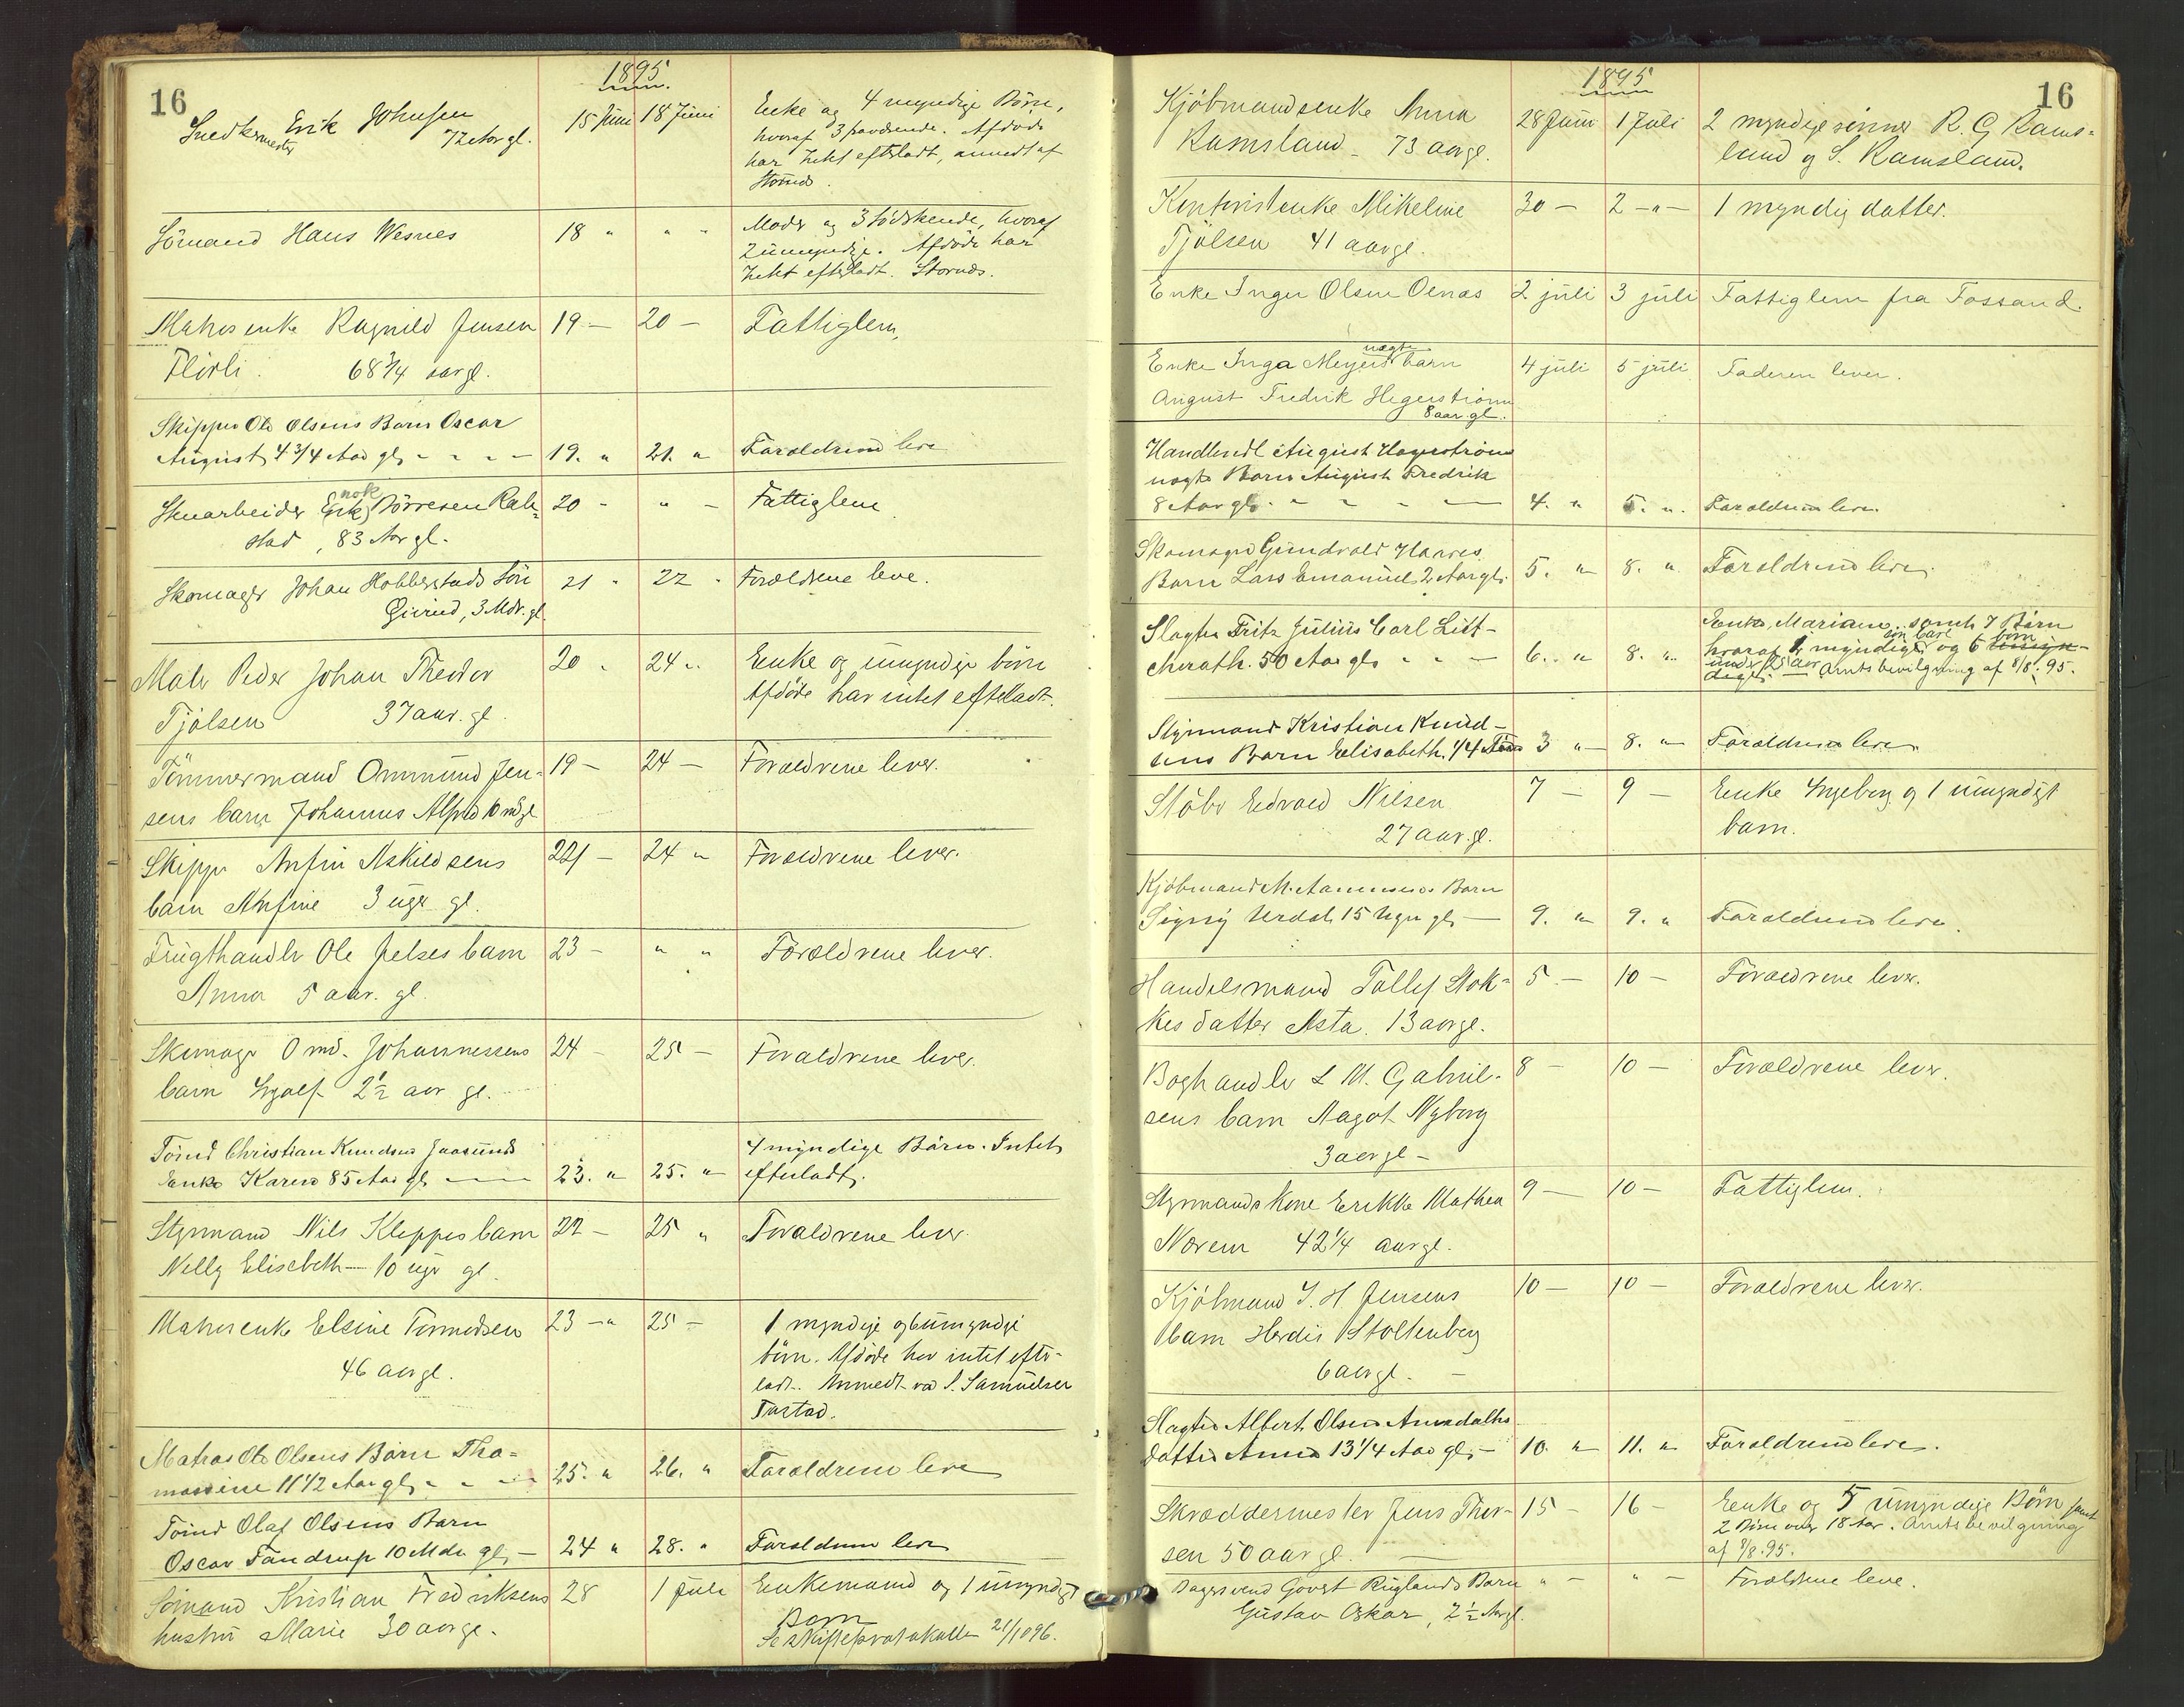 16
1895
Snedkermester Erik Johnsen
72 Aar gl.
15 Juni 18 Juni
Enke og 4 myndige Börn,
hvoraf 3 paa
har Intet efterladt, anmeldt af
Sömand Hans Wesnes
18 " " "
Moder og 3 Södskende, hvoraf
2 umyndige. Afdöde har
Intet efterladt.
Matrosenke Ragnild Jensen
Flörli 68 3/4 aar gl.
19 — 20 —
Fattiglem,
Skipper Ole Olsens Barn Oscar
August 4 3/4 Aar gl. - - - -
19. " 21. "
Foræeldrene leve
Stenarbeider Erik nok Börresen Rak-
stad, 83 Aar gl.
20 - " -
Fattiglem
Skomager Johan Hobberstads Sön
3 Mdr. gl.
21 " 22 "
Forældrene leve.
Maler Peder Johan Theodor
Tjölsen 37 aar. gl.
20 " 24 "
Enke og umyndige börn
Afdöde har intet efterladt.
Tömmermand Ommund Jen-
sens barn Johannes Alfred 10 md gl
19 — 24 —
Forældrene lever.
Skipper Anfin Askildsens
barn Anfine 3 uger gl.
221 — 24 "
Forældrene lever.
Frugthandler Ole Jelses barn
Anna 5 aar. gl.
23 — " "
Forældrene lever.
Skomager Omd. Johannessens
barn Ingolf 2 1/2 aar gl.
24 — 25 —
Forældrene lever.
Christian Knudsen Jaasunds
Enke Karen 85 Aar gl. — —
23. " 25. "
4 myndige Börn. Intet
efterladt.
Styrmand Nils Kleppes barn
Nelly Elisebeth — 10 uger gl.
22 — 25 "
Forældrene lever.
Matrosenke Elsine Tormodsen
46 aar gl.
23 — " 25 —
1 myndige og 6 umyndige
börn. Afdöde har intet efter-
ladt. Anmeldt ved S. Samuelsen
Tastad.
Matros Ole Olsens Barn Tho-
massine 11 1/2 Aar gl. - - -
25. " 26. "
Forældrene leve
Olaf Olsens Barn
Oscar Tandrup 10 Mdr. gl. —
24 " 28. "
Forældrene leve
Sömand Kristian Fredriksens
hustru Marie 30 aar gl.
28 1 Juli
Enkemand og 1 umyndigt
Barn
Se skifteprotokollen 21/10 96.
1895
16
Kjöbmandsenke Anna
Ramsland — 73 aar gl.
28 Juni 1 Juli
2 myndige sönner R. G Rams-
land og S. Ramsland.
Kontoristenke Mikeline
Tjölsen 41 aar gl.
30 — 2 — " —
1 myndig datter.
Enke Inger Olsen Oenæs
2 juli 3 juli
Fattiglem fra Fossand.
Enke Inga Meyers uægte barn
August Fredrik Hegerström
8 aar gl.
4 juli 5 juli
Faderen lever.
Handlende August Hagerströms
uægte Barn August Fredrik
8 Aar gl. - - - —
4. " 5. "
Forældrene leve.
Skomager Gundvald Haaves
Barn Lars Emanuel 2 Aar gl.
5. " 8. "
Forældrene leve.
Slagter Fritz Julius Carl List-
cherath. 50 Aar gl. - - —
6. " 8. "
Enke, Mariane, samt 7 Börn
hvoraf 1 myndige, og 6 umyn-
dige. Amtsbevilgning af 8/8. 95.
Styrmand Kristian Knud-
sens Barn Elisabeth 1/4 Aar
3 " 8. "
Forældrene leve
Stöber Edvard Nilsen
27 aar. gl.
7 — 9 —
Enke Ingeborg og 1 umyndigt
barn.
Kjöbmand M. Aanensens Barn
Signy Urdal 15 Uger gl. —
9. " 9. "
Forældrene leve.
Handelsmand Tollef Stok-
kes datter Asta. 13 aar gl.
5 — 10 —
Forældrene lever.
Boghandler L M. Gabriel-
sens barn Aagot Nyborg
3 aar gl —
8 — 10 —
Forældrene lever.
Styrmandskone Erikke Mathea
Norem 42 1/4 aar gl.
9 — 10 —
Fattiglem.
Kjöbmand J. H Jensens
barn Herdis Stoltenberg
6 aar gl. —
10 — 10 —
Forældrene lever.
Slagter Albert Olsen Aarsdalhs
Datter Anna 13 1/4 Aar gl. —
10. " 11. "
Forældrene leve.
Skræddermester Jens Thor-
sen 50 aar gl. —
15 — 16 —
Enke og 5 umyndige Börn samt
2 Börn over 18 Aar. Amtsbevilgning
af 8/8. 95.
Dagsvend Govert Ruglands Barn
Gustav Oskar, 2 1/2 Aar gl.
" — " —
Forældrene leve.